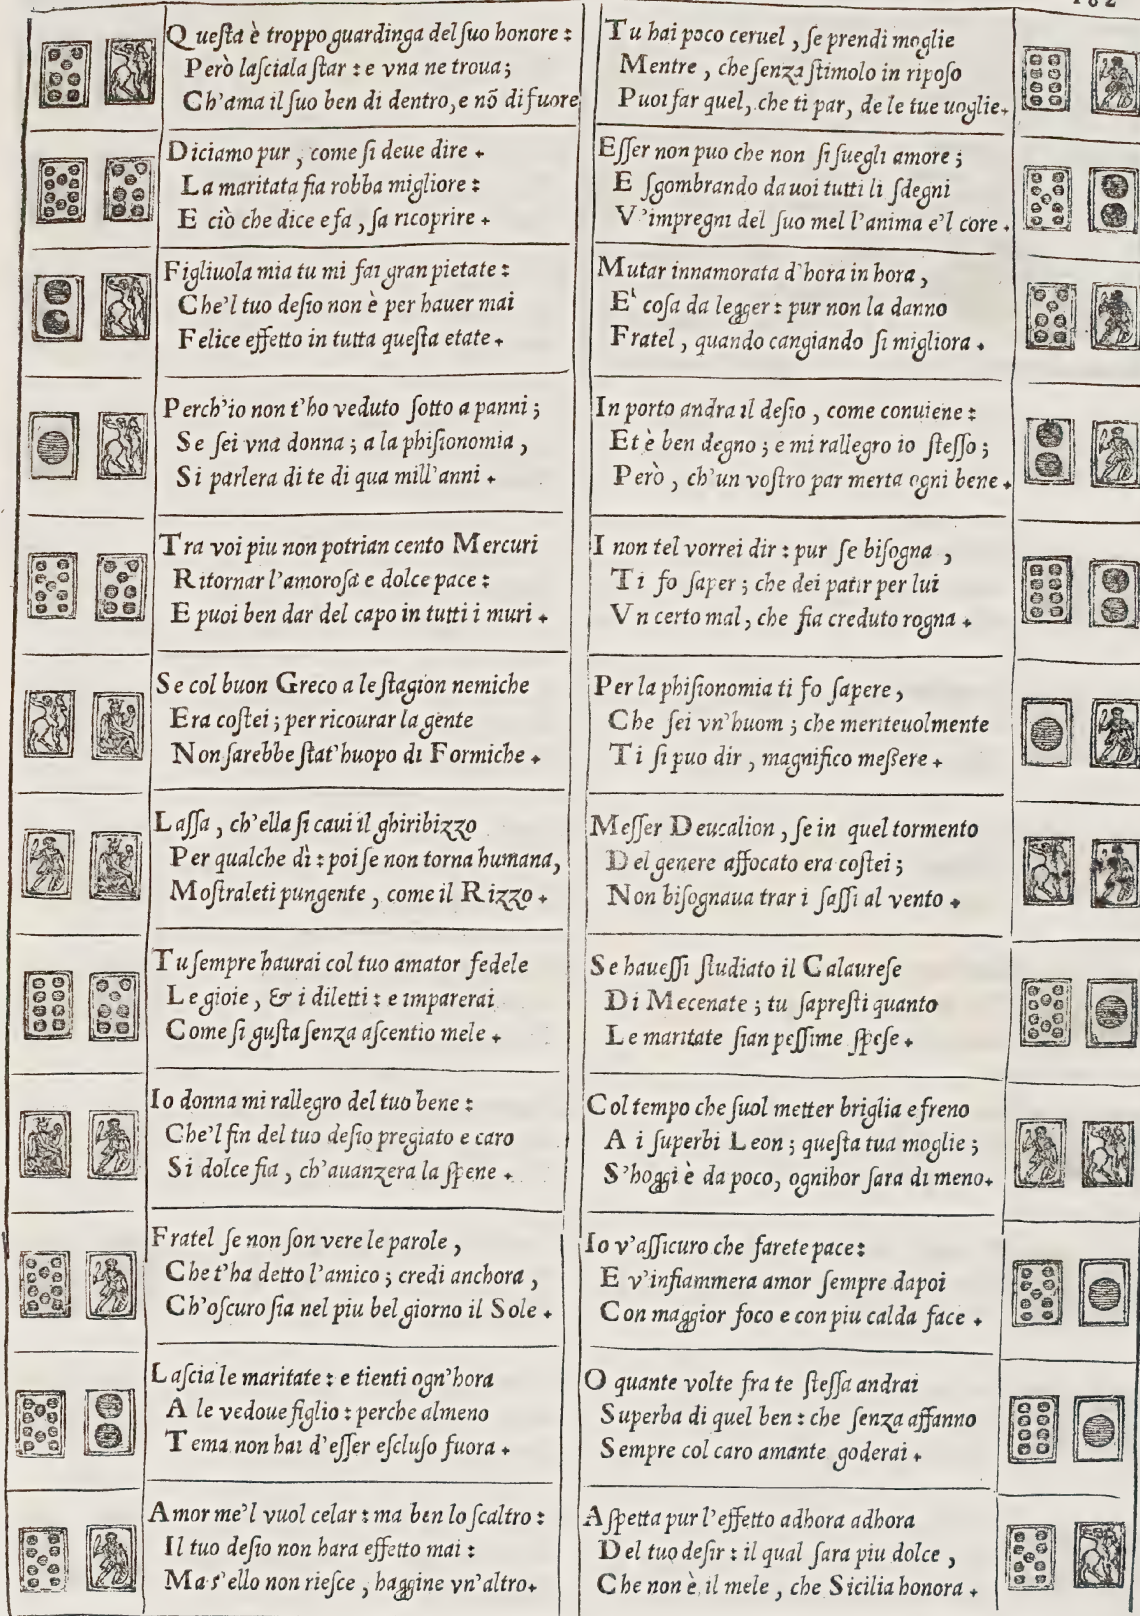 Queſta è troppo guardinga del ſuo honore :
Però laſciala ſtar : e vna ne troua;
Ch'ama il ſuo ben di dentro, e nō di fuore
Diciamo pur, come ſi deue dire.
La maritata ſia robba migliore :
E ciò che dice e fa, ſa ricoprire.
Figliuola mia tu mi fai gran pietate :
Che'l tuo deſio non è per hauer mai
Felice effetto in tutta queſta etate.
Perch'io non t'ho veduto ſotto a panni;
Se ſei vna donna; a la phiſionomia,
Si parlera di te di qua mill'anni.
Tra voi piu non potrian cento Mercuri
Ritornar l'amoroſa e dolce pace :
E puoi ben dar del capo in tutti i muri.
Se col buon Greco a le ſtagion nemiche
Era coſtei; per ricourar la gente
Non ſarebbe ſtat'huopo di Formiche.
Laſſa, ch'ella ſi caui il ghiribizzo
Per qualche dì : poi ſe non torna humana,
Moſtraleti pungente, come il Rizzo.
Tu ſempre haurai col tuo amator fedele
Le gioie, & i diletti : e imparerai
Come ſi guſta ſenza aſcentio mele.
Io donna mi rallegro del tuo bene :
Che'l fin del tuo deſio pregiato e caro
Si dolce fia, ch'auanzera la ſpene.
Fratel ſe non ſon vere le parole,
Che t'ha detto l'amico; credi anchora,
Ch'oſcuro ſia nel piu bel giorno il Sole.
Laſcia le maritate : e tienti ogn'hora
A le vedoue figlio : perche almeno
Tema non hai d'eſſer eſcluſo fuora.
Amor me'l vuol celar : ma ben lo ſcaltro :
Il tuo deſio non hara effetto mai :
Ma s'ello non rieſce, haggine vn'altro.
182
Tu hai poco ceruel, ſe prendi moglie
Mentre, che ſenza ſtimolo in ripoſo
Puoi far quel, che ti par, de le tue uoglie.
Eſſer non puo che non ſi ſuegli amore;
E ſgombrando da uoi tutti li ſdegni
V'impregni del ſuo mel l'anima e'l core.
Mutar innamorata d'hora in hora,
E' coſa da legger : pur non la danno
Fratel, quando cangiando ſi migliora.
In porto andra il deſio, come conuiene :
Et è ben degno; e mi rallegro io ſteſſo;
Però, ch'un voſtro par merta ogni bene.
I non tel vorrei dir : pur ſe biſogna,
Ti fo ſaper; che dei patir per lui
Vn certo mal, che fia creduto rogna.
Per la phiſionomia ti fo ſapere,
Che ſei vn'huom; che meriteuolmente
Ti ſi puo dir, magnifico meſsere.
Meſſer Deucalion, ſe in quel tormento
Del genere affocato era coſtei;
Non biſognaua trar i ſaſſi al vento.
Se haueſſi ſtudiato il Calaureſe
Di Mecenate; tu ſapreſti quanto
Le maritate ſian peſſime ſpeſe.
Col tempo che ſuol metter briglia e freno
A i ſuperbi Leon; queſta tua moglie;
S'hoggi è da poco, ognihor ſara di meno.
Io v'aſſicuro che farete pace :
E v'infiammera amor ſempre dapoi
Con maggior foco e con piu calda face.
O quante volte fra te ſteſſa andrai
Superba di quel ben : che ſenza affanno
Sempre col caro amante goderai.
Aſpetta pur l'effetto adhora adhora
Del tuo deſir : il qual ſara piu dolce,
Che non è il mele, che Sicilia honora.